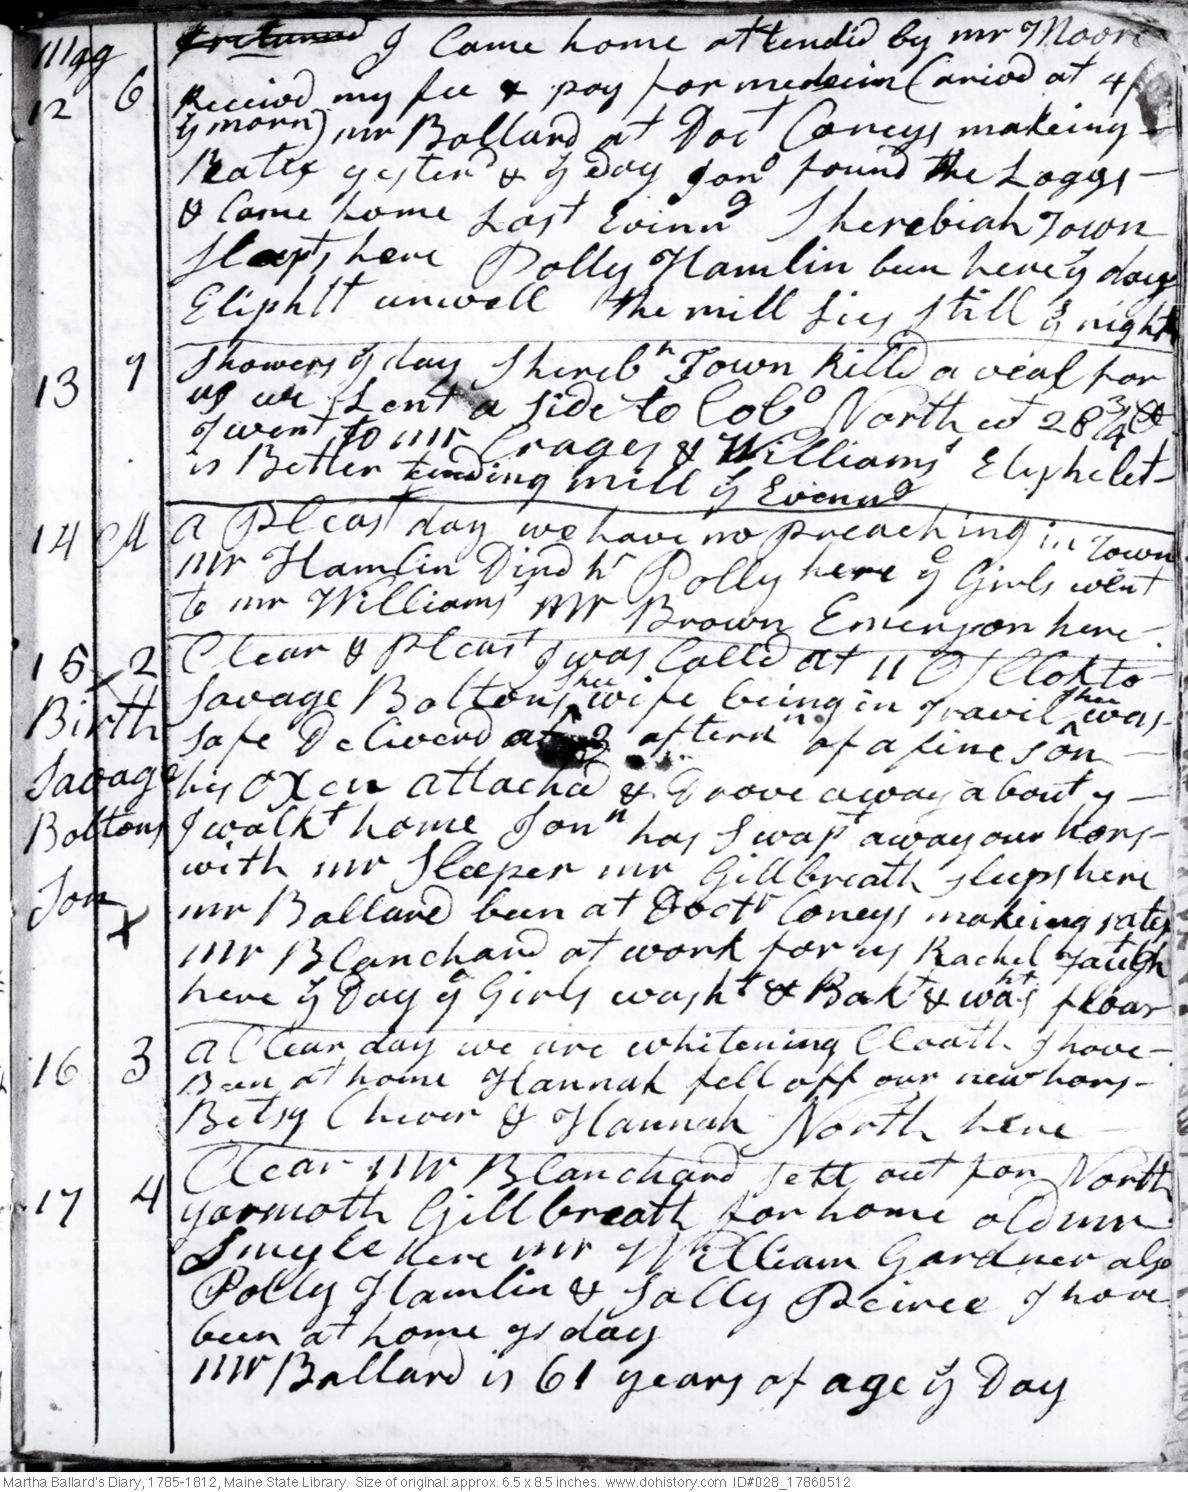 I Came home attendid by mr Moore
12 6 Receivd my fee & pay for medecin (arivd at 4
ye morn) mr Ballard at Doct Coneys makeing
Rates yesterd & ys Day Jonª found the Loggs
& Came home Last Evinng Sherebiah Town
Sleept here Polly Hamlin been here ys day
Eliphlt unwell the mill Lies still ys night
13 7 Showers ys day Sherebh Town Killd a veal for
us we Sent a side to Colº North wt 28 3/4 lb
I went to mr Crages & Williams' Eliphelet
is Better tending mill ys Evinng
14 A a Pleast day we have no preaching in Town
mr Hamlin Dind hr Polly here ye Girls went
to mr Williams' Mr Brown Emerson here
15 2 Clear & Pleast I was Calld at 11 O Clok to
Birth Savage Boltons wife being in Travil Shee was
safe Deliverd at 3 aftern of a fine son
Savage his Oxen attachd & Drove away about
Boltons I walkt home Jonn has swapt away our hors
with mr Sleeper mr Gillbreath sleeps here
Son mr Ballard been at Doctr Coneys makeing rates
X Mr Blanchard at work for us Rachel
here ys Day ye Girls washt & Bakt & washt floar
16 3 a Clear day we are whitening Cloath I have
Been at home Hannah fell off our new hors
Betsy Chever & Hannah North here
17 4 Clear Mr Blanchard sett out for North
yarmoth Gillbreath for home old mr
Smyle here mr William Gardner also
Polly Hamlin & Sally Peirce I have
been at home ys day
Mr Ballard is 61 years of age ys Day
Martha Ballard's Diary, 1785-1812, Maine State Library. Size of original: approx. 6.5 x 8.5 inches. www.dohistory.com ID#028_17860512